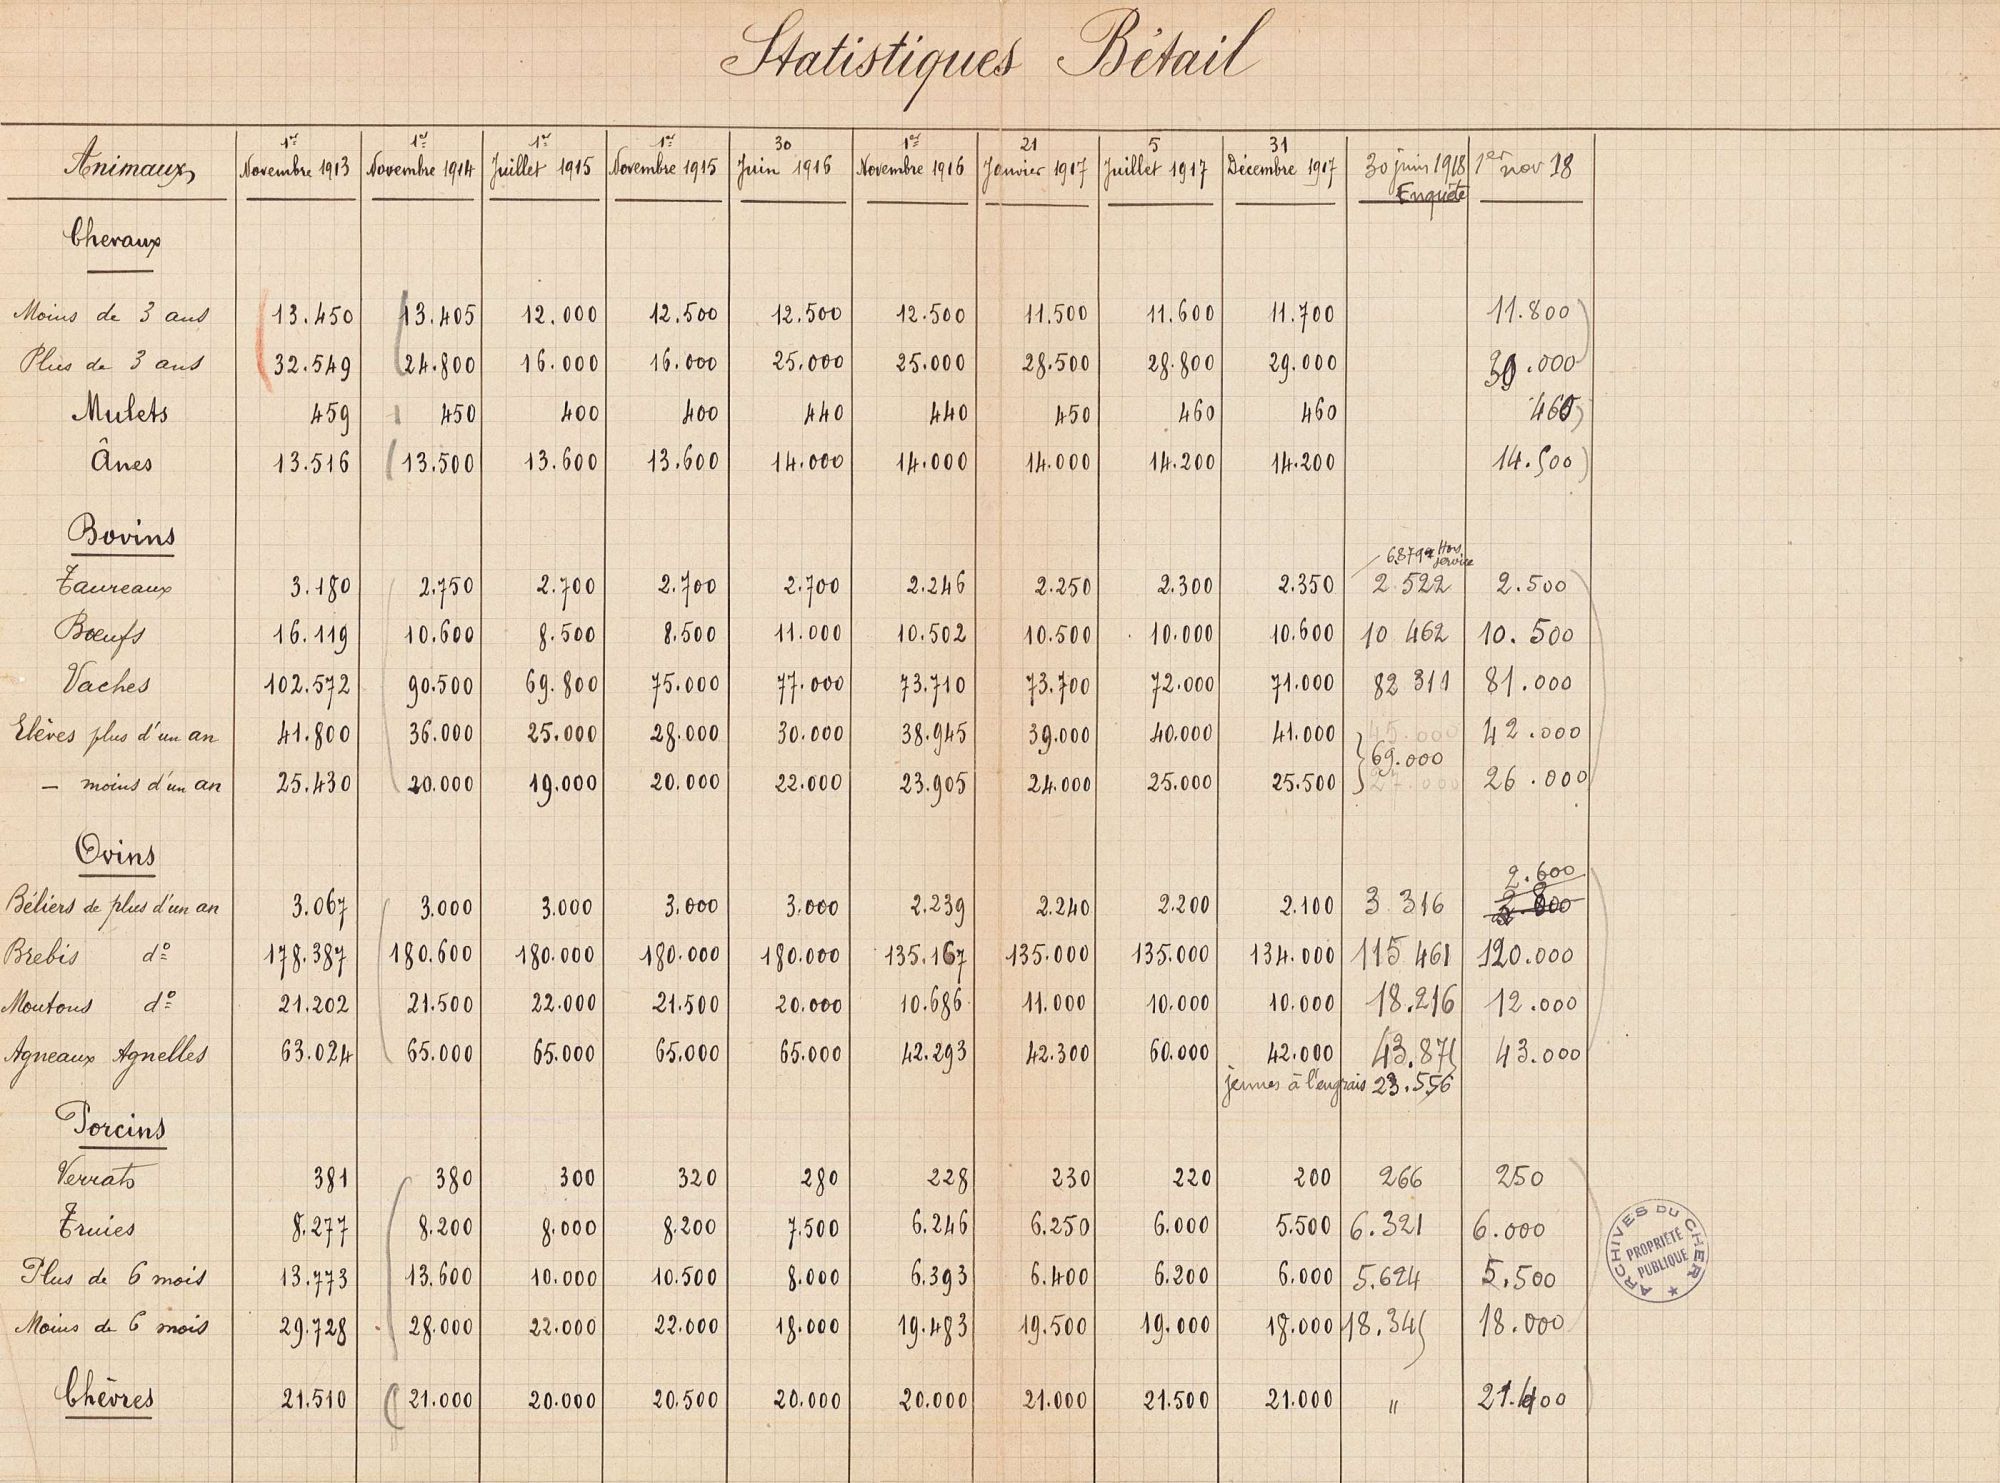 Statistiques Bétail
Animaux 1er Novembre 1913 1er Novembre 1914 1er Juillet 1915 1er Novembre 1915 30 Juin 1916 1er Novembre 1916 21 Janvier 1917 5 Juillet 1917 31 Décembre 1917 30 juin 1918 Enquête 1er nov 18
Chevaux
Moins de 3 ans 13.450 13.405 12.000 12.500 12.500 12.500 11.500 11.600 11.700 11.800
Plus de 3 ans 32.549 24.800 16.000 16.000 25.000 25.000 28.500 28.800 29.000 30.000
Mulets 459 450 400 400 440 440 450 460 460 460
Ânes 13.516 13.500 13.600 13.600 14.000 14.000 14.000 14.200 14.200 14.500
Bovins
Hors service
Taureaux 3.180 2.750 2.700 2.700 2.700 2.246 2.250 2.300 2.350 2 522 2.500
Bœufs 16.119 10.600 8.500 8.500 11.000 10.502 10.500 10.000 10.600 10 462 10.500
Vaches 102.572 90.500 69.800 75.000 77.000 73.710 73.700 72.000 71.000 82 311 81.000
Elèves plus d'un an 41.800 36.000 25.000 28.000 30.000 38.945 39.000 40.000 41.000 45.000 42.000
69.000
— moins d'un an 25.430 20.000 19.000 20.000 22.000 23.905 24.000 25.000 25.500 27.000 26.000
Ovins
2.600
Béliers de plus d'un an 3.067 3.000 3.000 3.000 3.000 2.239 2.240 2.200 2.100 3 316
Brebis do 178.387 180.600 180.000 180.000 180.000 135.167 135.000 135.000 134.000 115 461 120.000
Moutons do 21.202 21.500 22.000 21.500 20.000 10.686 11.000 10.000 10.000 18.216 12.000
Agneaux Agnelles 63.024 65.000 65.000 65.000 65.000 42.293 42.300 60.000 42.000 43.871 43.000
jeunes à l'engrais 23.556
Porcins
Verrats 381 380 300 320 280 228 230 220 200 266 250
Truies 8.277 8.200 8.000 8.200 7.500 6.246 6.250 6.000 5.500 6.321 6.000
Plus de 6 mois 13.773 13.600 10.000 10.500 8.000 6.393 6.400 6.200 6.000 5.624 5.500
Moins de 6 mois 29.728 28.000 22.000 22.000 18.000 19.483 19.500 19.000 18.000 18.341 18.000
Chèvres 21.510 21.000 20.000 20.500 20.000 20.000 21.000 21.500 21.000 " 21.400
ARCHIVES DU CHER
PROPRIÉTÉ
PUBLIQUE